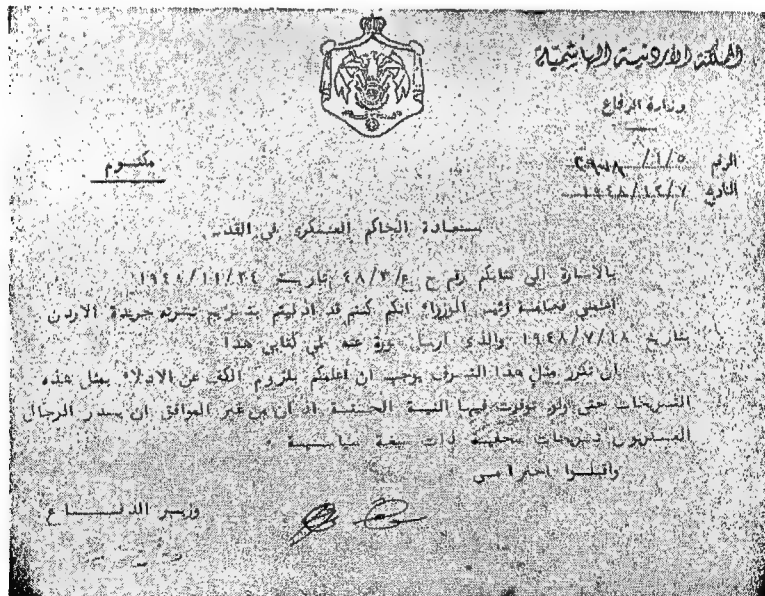 المملكة الأردنية الهاشمية
وزارة الدفاع
الرقم ١/٥/
التاريخ ١٩٤٨/١٢/٧
مكتوم
سعادة الحاكم العسكري في القدس
بالاشارة الى كتابكم رقم ح ع/٤٨/٣ تاريخ ١٩٤٨/١١/٢٤
فخامة رئيس الوزراء انكم كنتم قد ادليتم بتصريح نشرته جريدة الاردن
بتاريخ ١٩٤٨/٧/١٨ والذي ارسل صورة عنه طي كتابي هذا
ان تكرر مثل هذا التصرف يوجب ان أعلمكم بلزوم الكف عن الادلاء بمثل هذه
التصريحات حتى ولو توفرت فيها النية الحسنة اذ أن من غير الموافق ان يصدر الرجال
العسكريون تصريحات صحفية ذات صبغة سياسية .
واقبلوا احترامي
وزير الدفاع